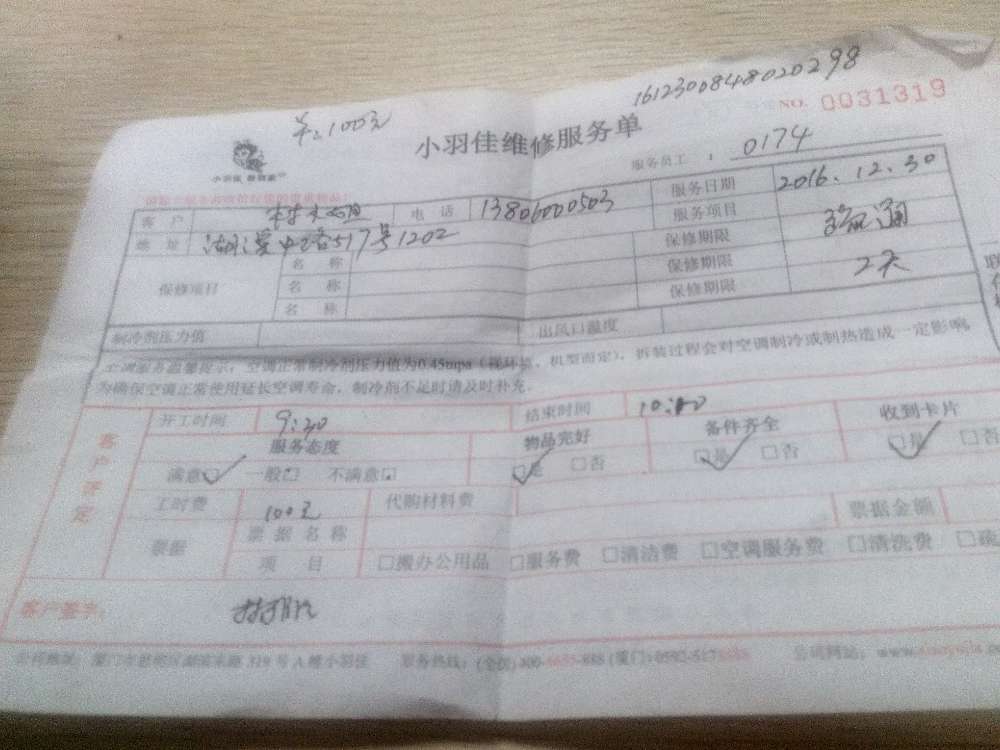 1612300848020298
羊:100元
小羽佳维修服务单
NO. 0031319
服务员工: 0174
客 户 电 话 13806000503 服务日期 2016.12.30
地 址 中路517号1202 服务项目 疏通
保修项目 名 称 保修期限 2天
名 称 保修期限
名 称 保修期限
制冷剂压力值 出风口温度
空调服务温馨提示:空调正常制冷剂压力值为0.45mpa(视环境、机型而定),拆装过程会对空调制冷或制热造成一定影响,
为确保空调正常使用延长空调寿命,制冷剂不足时请及时补充。
客户评定
开工时间 9:30 结束时间 10:00
服务态度 物品完好 备件齐全 收到卡片
满意□ 一般□ 不满意□ □是 □否 □是 □否 □是 □否
工时费 100元 代购材料费
票据 票据名称 票据金额
项 目 □搬办公用品 □服务费 □清洁费 □空调服务费 □清洗费 □疏
客户签字:
公司地址: 319号A楼小羽佳 服务热线:(全国)400-6655-888 (厦门)0592-517 公司网址:www.